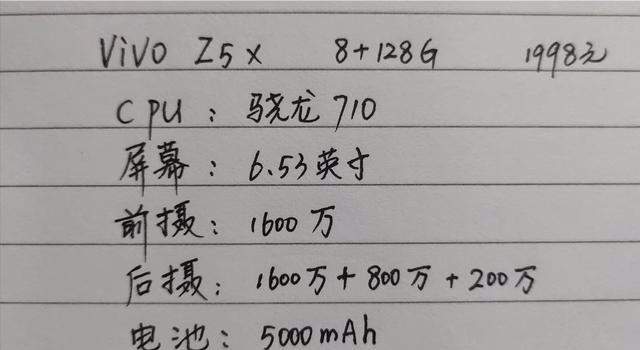 ViVO Z5x 8+128G 1998元
CPU：骁龙710
屏幕：6.53英寸
前摄：1600万
后摄：1600万+800万+200万
电池：5000mAh